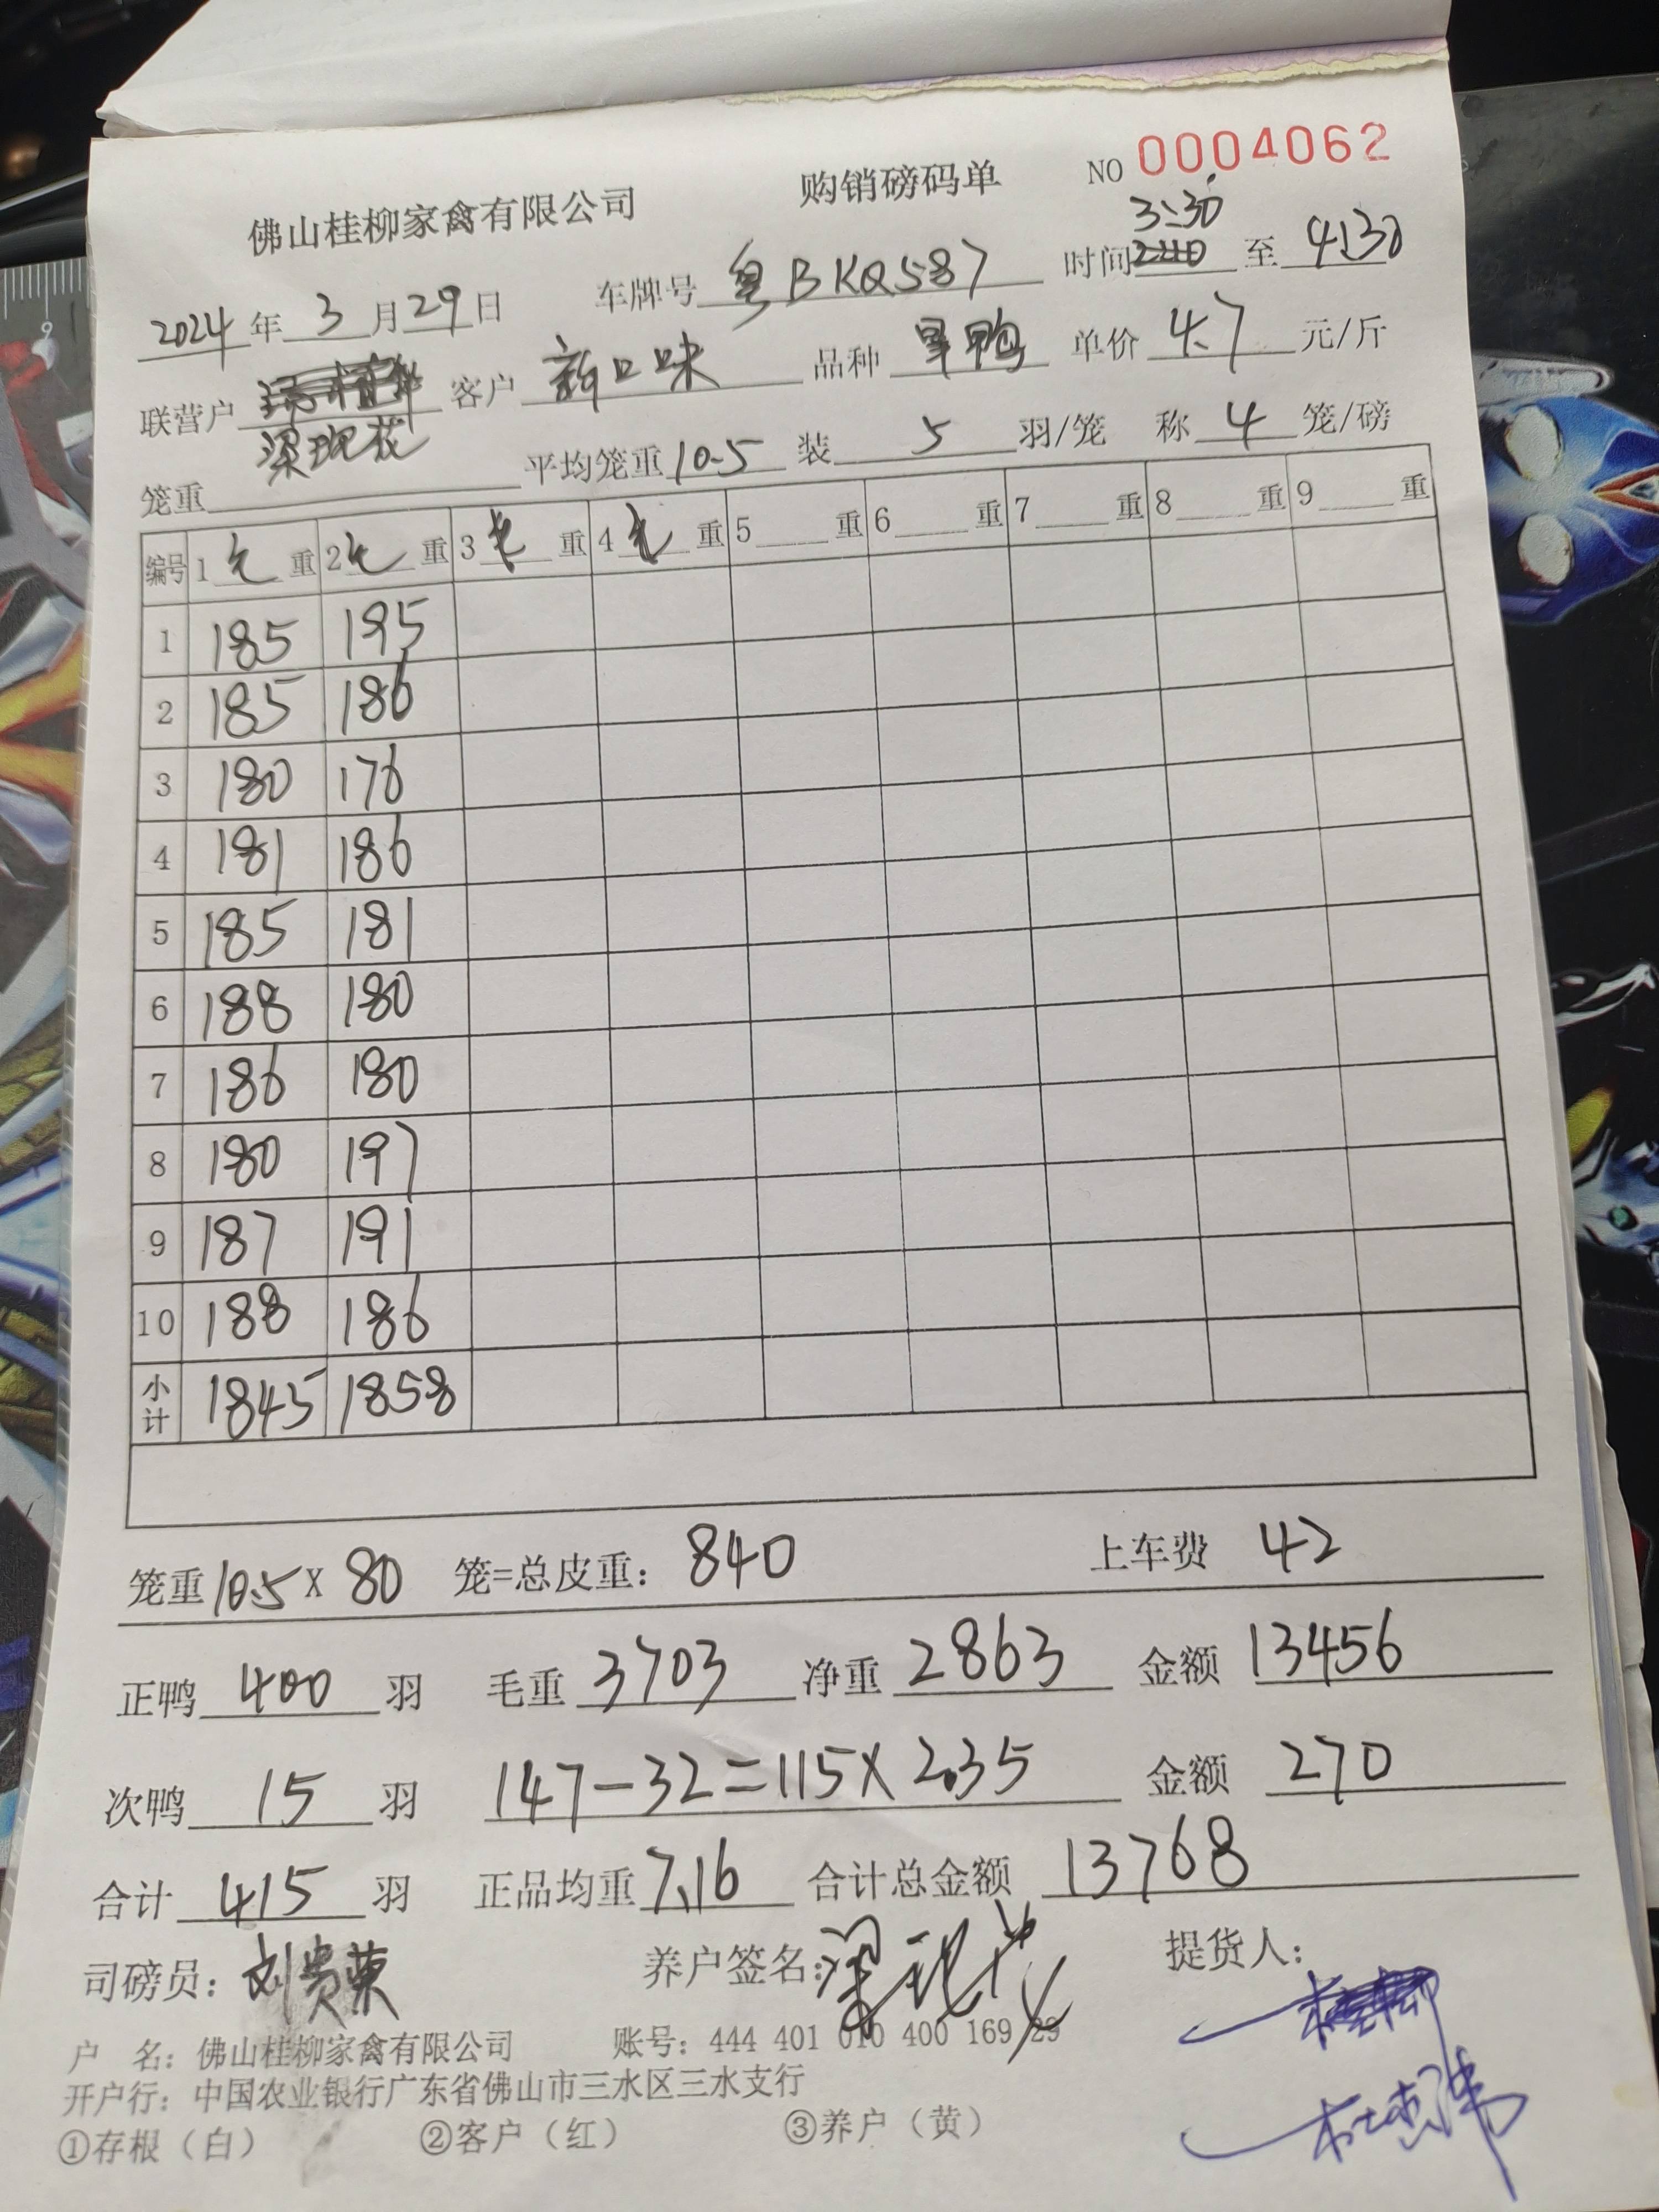 佛山桂柳家禽有限公司 购销磅码单 NO 0004062
2024年3月29日 车牌号 粤BKQ587 时间 3:30 至 4:30
联营户 客户 新口味 品种 旱鸭 单价 4.7 元/斤
笼重 平均笼重 10.5 装 5 羽/笼 称 4 笼/磅
编号 1 毛 重 2 毛 重 3 毛 重 4 毛 重 5 重 6 重 7 重 8 重 9 重
1 185 195
2 185 186
3 180 176
4 181 186
5 185 181
6 188 180
7 186 180
8 180 197
9 187 191
10 188 186
小计 1845 1858
笼重 10.5 X 80 笼=总皮重: 840 上车费 42
正鸭 400 羽 毛重 3703 净重 2863 金额 13456
次鸭 15 羽 147-32=115X2.35 金额 270
合计 415 羽 正品均重 7.16 合计总金额 13768
司磅员: 刘贵荣 养户签名: 提货人:
户 名: 佛山桂柳家禽有限公司 账号: 444 401 010 400 169 29
开户行: 中国农业银行广东省佛山市三水区三水支行
①存根(白) ②客户(红) ③养户(黄)